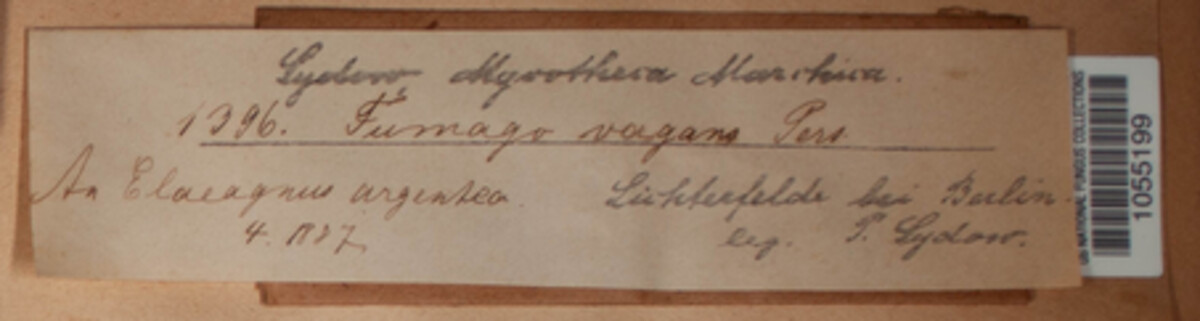 Sydow, Mycotheca Marchica.
1396. Fumago vagans Pers
An Elaeagnus argentea.
4. 1887
Lichterfelde bei Berlin.
leg. P. Sydow.
US NATIONAL FUNGUS COLLECTIONS
1055199